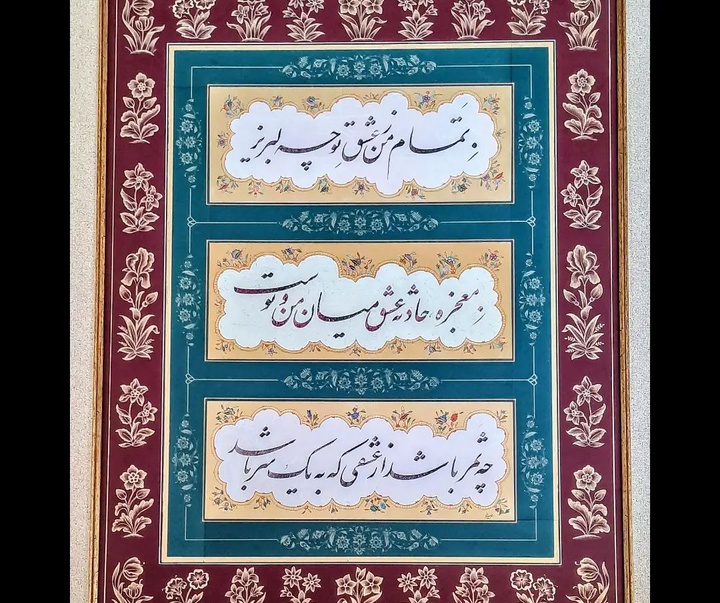 تمام من ز عشق تو چه لبریز
معجزه، حادثه عشق میان من و توست
چه ثمر باشد از عشقی که به یک سر باشد